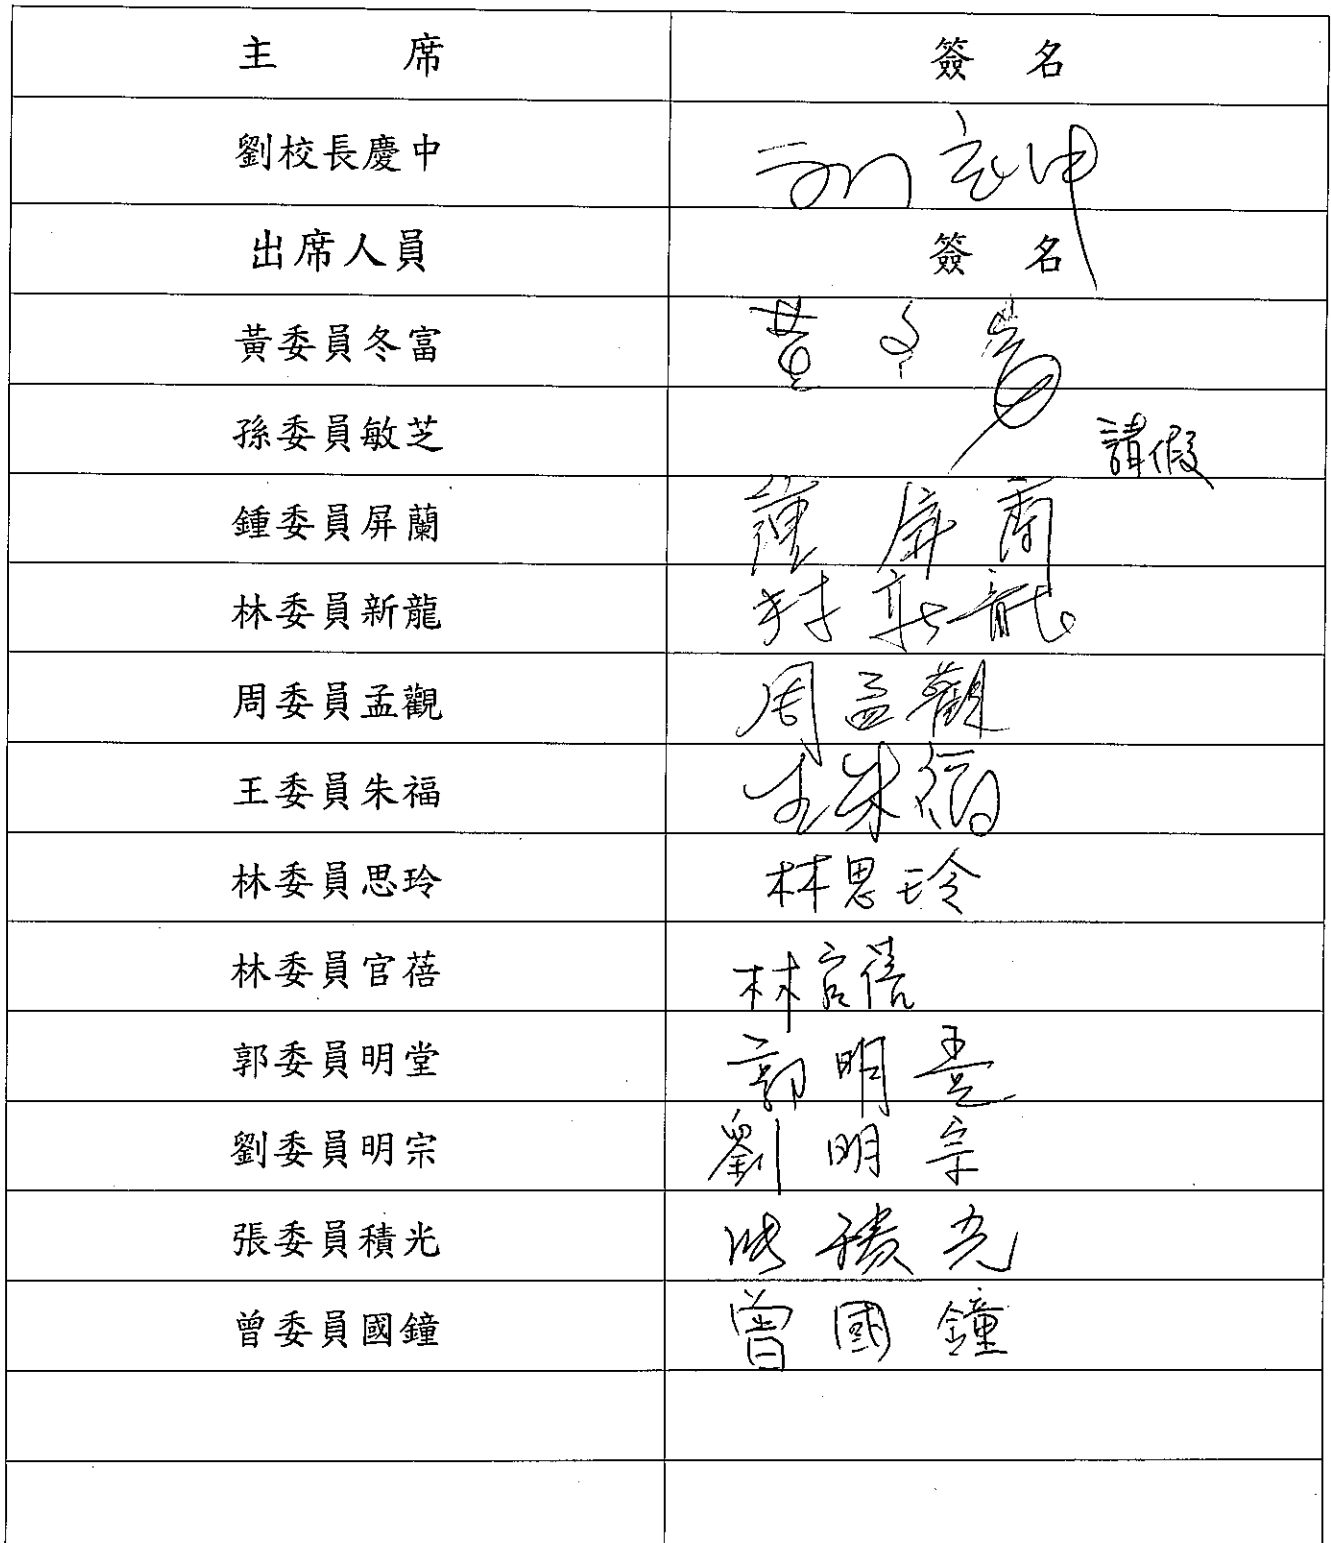 主 席 簽 名
劉校長慶中 劉慶中
出席人員 簽 名
黃委員冬富 黃冬富
孫委員敏芝 請假
鍾委員屏蘭 鍾屏蘭
林委員新龍 林新龍
周委員孟觀 周孟觀
王委員朱福 王朱福
林委員思玲 林思玲
林委員官蓓 林官蓓
郭委員明堂 郭明堂
劉委員明宗 劉明宗
張委員積光 張積光
曾委員國鐘 曾國鐘